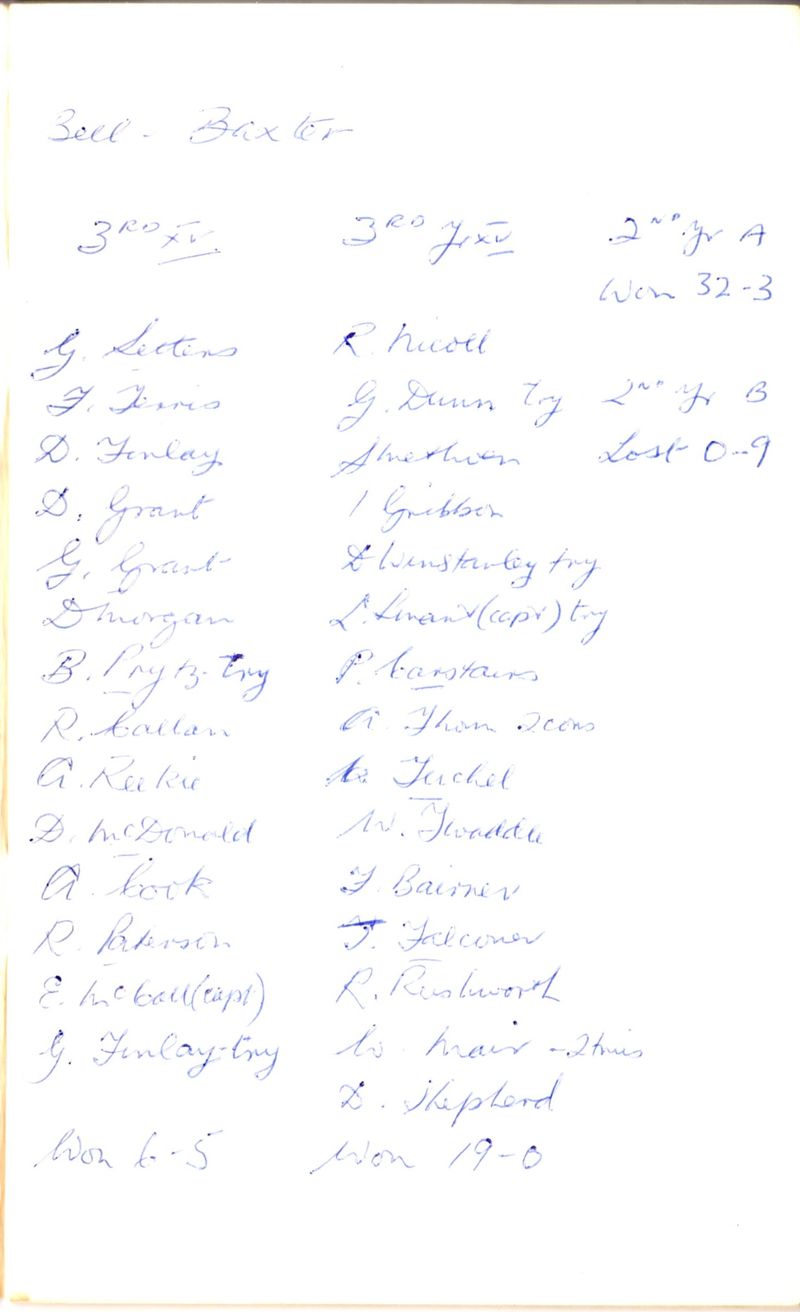 Bell - Baxter
3RD XV
G. Setters
F. Ferris
D. Finlay
D. Grant
G. Grant
D Morgan
B. Prytz - Try
R. Callan
A. Reekie
D. McDonald
A. Cook
R. Paterson
E. McCall (capt)
G. Finlay - try
Won 6 - 5
3RD Yr XV
R. Nicoll
G. Dunn Try
S Methven
I Gribbon
D Winstanley try
L. (capt) try
P. Carstairs
A. Thom 2 cons
Tuchel
W. Twaddle
F. Bairner
J. Falconer
R. Rushworth
W. Mair - 2 tries
D. Shepherd
Won 19 - 0
2ND Yr A
Won 32 - 3
2ND Yr B
Lost 0 - 9